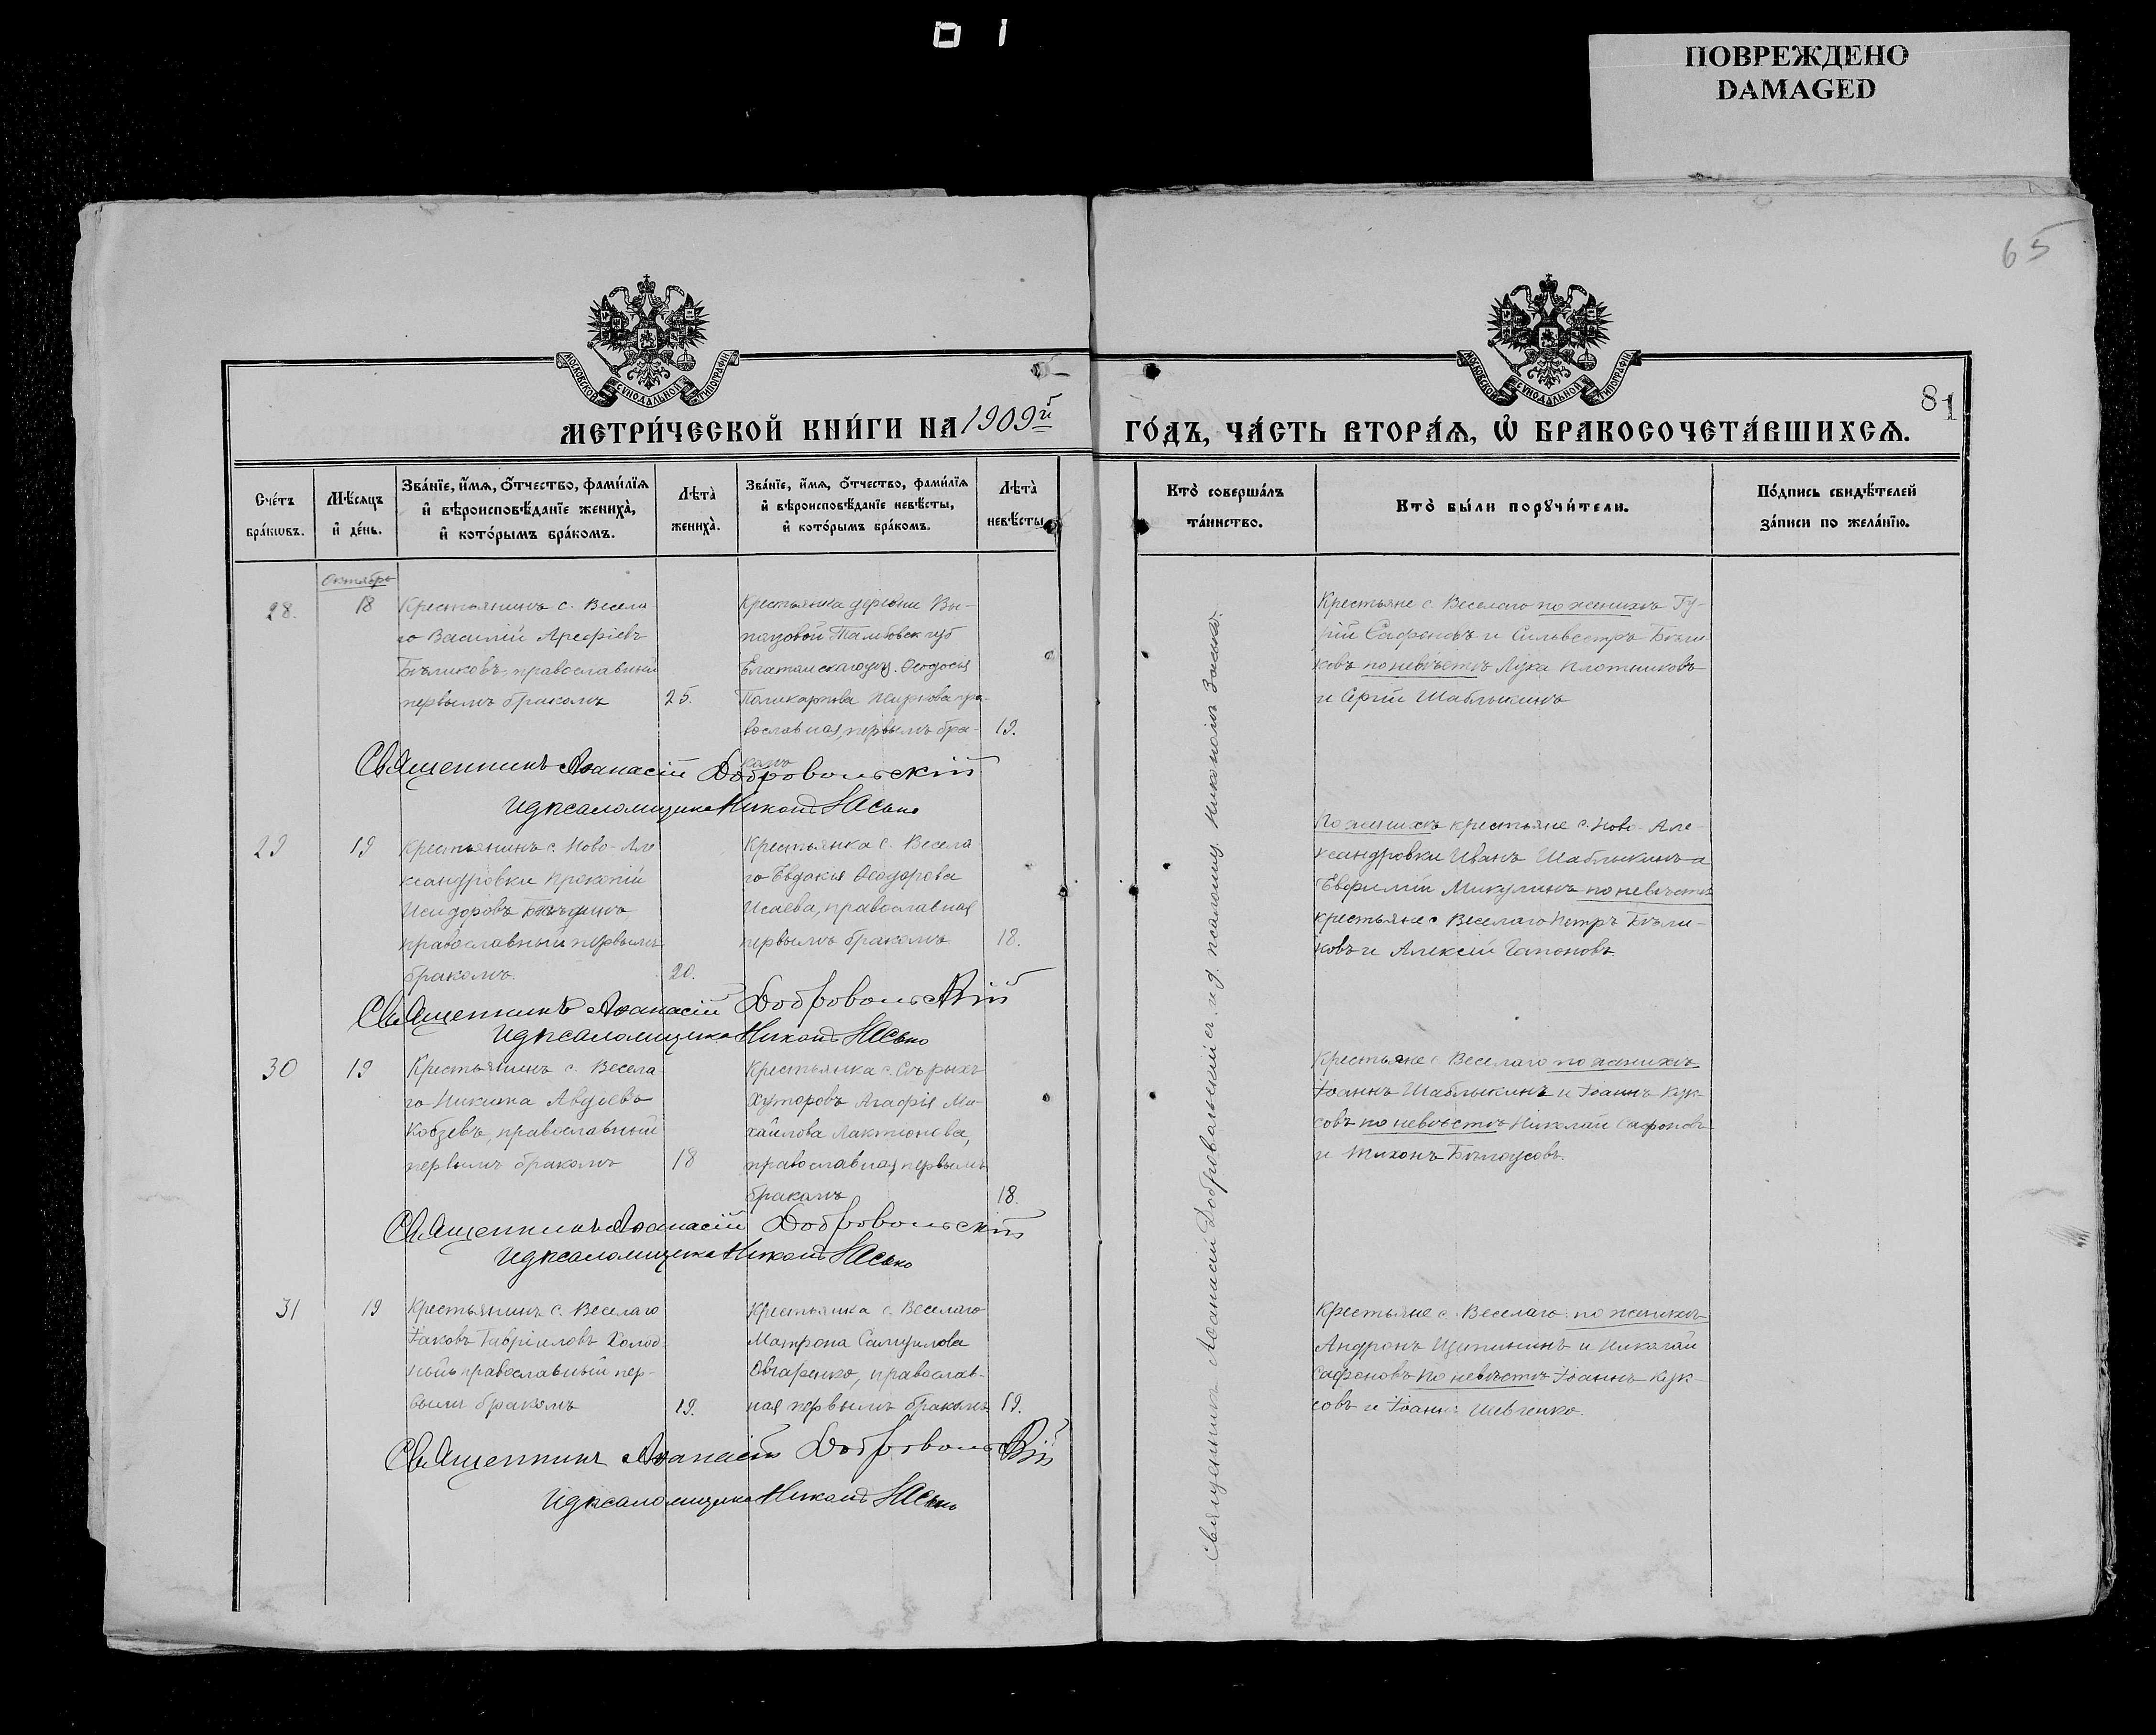 ПОВРЕЖДЕНО
DAMAGED
65
МОСКОВСКОЙ СѴНОДАЛЬНОЙ ТИПОГРАФІИ
МОСКОВСКОЙ СѴНОДАЛЬНОЙ ТИПОГРАФІИ
81
МЕТРИ́ЧЕСКОЙ КНИ́ГИ НА 1909й
ГО́ДЪ, ЧА́СТЬ ВТОРА́Ѧ, Ѡ҆ БРАКОСОЧЕТА́ВШИХСѦ.
Сче́тъ бра́кѡвъ.
Мѣ́сяцъ и҆ де́нь.
Зва́нїе, и҆́мя, ѻ҆́тчество, фами́лїя
и҆ вѣроисповѣ́данїе жениха̀,
и҆ кото́рымъ бра́комъ.
Лѣта̀ жениха̀.
Зва́нїе, и҆́мя, ѻ҆́тчество, фами́лїя
и҆ вѣроисповѣ́данїе невѣ́сты,
и҆ кото́рымъ бра́комъ.
Лѣта̀ невѣ́сты
Кто̀ соверша́лъ
та́инство.
Кто̀ бы́ли порꙋчи́тели.
По́дпись свидѣ́телей
за́писи по жела́нїю.
Октябрь
28.
18
Крестьянинъ с. Весела
го Василій Арефіевъ
Бѣликовъ, православный
первымъ бракомъ
25.
Крестьянка деревни
Тамбовск губ
Ѳеодосія
Поликарпова пра-
вославная, первымъ бра-
комъ
19.
Крестьяне с. Веселаго по женихѣ Гу-
рій Сафоновъ и Сильвестръ Бѣли
ковъ по невѣстѣ Лука Плотниковъ
и Сергій Шаблыкинъ
Священникъ Аѳанасій Добровольскій
И д псаломщика Никонъ Засько
29
19
Крестьянинъ с. Ново-Але
ксандровки Прокопій
Исидоровъ
православный первымъ
бракомъ.
20.
Крестьянка с. Весела
го Евдокія Ѳеодорова
Исаева, православная
первымъ бракомъ
18.
По женихѣ крестьяне с. Ново-Але-
ксандровки Иванъ Шаблыкинъ и
Евфимій Микулинъ по невѣстѣ
крестьяне с Веселаго Петръ Бѣли-
ковъ и Алексій Гапоновъ.
Священникъ Аѳанасій Добровольскій
И д псаломщика Никонъ Засько
30
19
Крестьянинъ с. Весела
го Никита Авдіевъ
Кобзевъ, православный
первымъ бракомъ
18
Крестьянка с. Сѣрыхъ
хуторовъ Агафія Ми-
хайлова Лактіонова,
православная, первымъ
бракомъ
18.
Крестьяне с Веселаго по женихѣ
Іоаннъ Шаблыкинъ и Іоаннъ Кук-
совъ по невѣстѣ Николай Сафоновъ
и Тихонъ Бѣлоусовъ.
Священникъ Аѳанасій Добровольскій
И д псаломщика Никонъ Засько
31
19
Крестьянинъ с. Веселаго
Іаковъ Гавріиловъ Холод-
ный православный пер-
вымъ бракомъ
19.
Крестьянка с. Веселаго
Матрона Самуилова
Овчаренко, православ-
ная первымъ бракомъ
19.
Крестьяне с. Веселаго по женихѣ
Андронъ Щетининъ и Николай
Сафоновъ по невѣстѣ Іоаннъ Кук-
совъ и Іоаннъ Шевченко.
Священникъ Аѳанасій Добровольскій
И д псаломщика Никонъ Засько
Священникъ Аѳанасій Добровольскій съ и. д. псаломщ. Никономъ Засько.